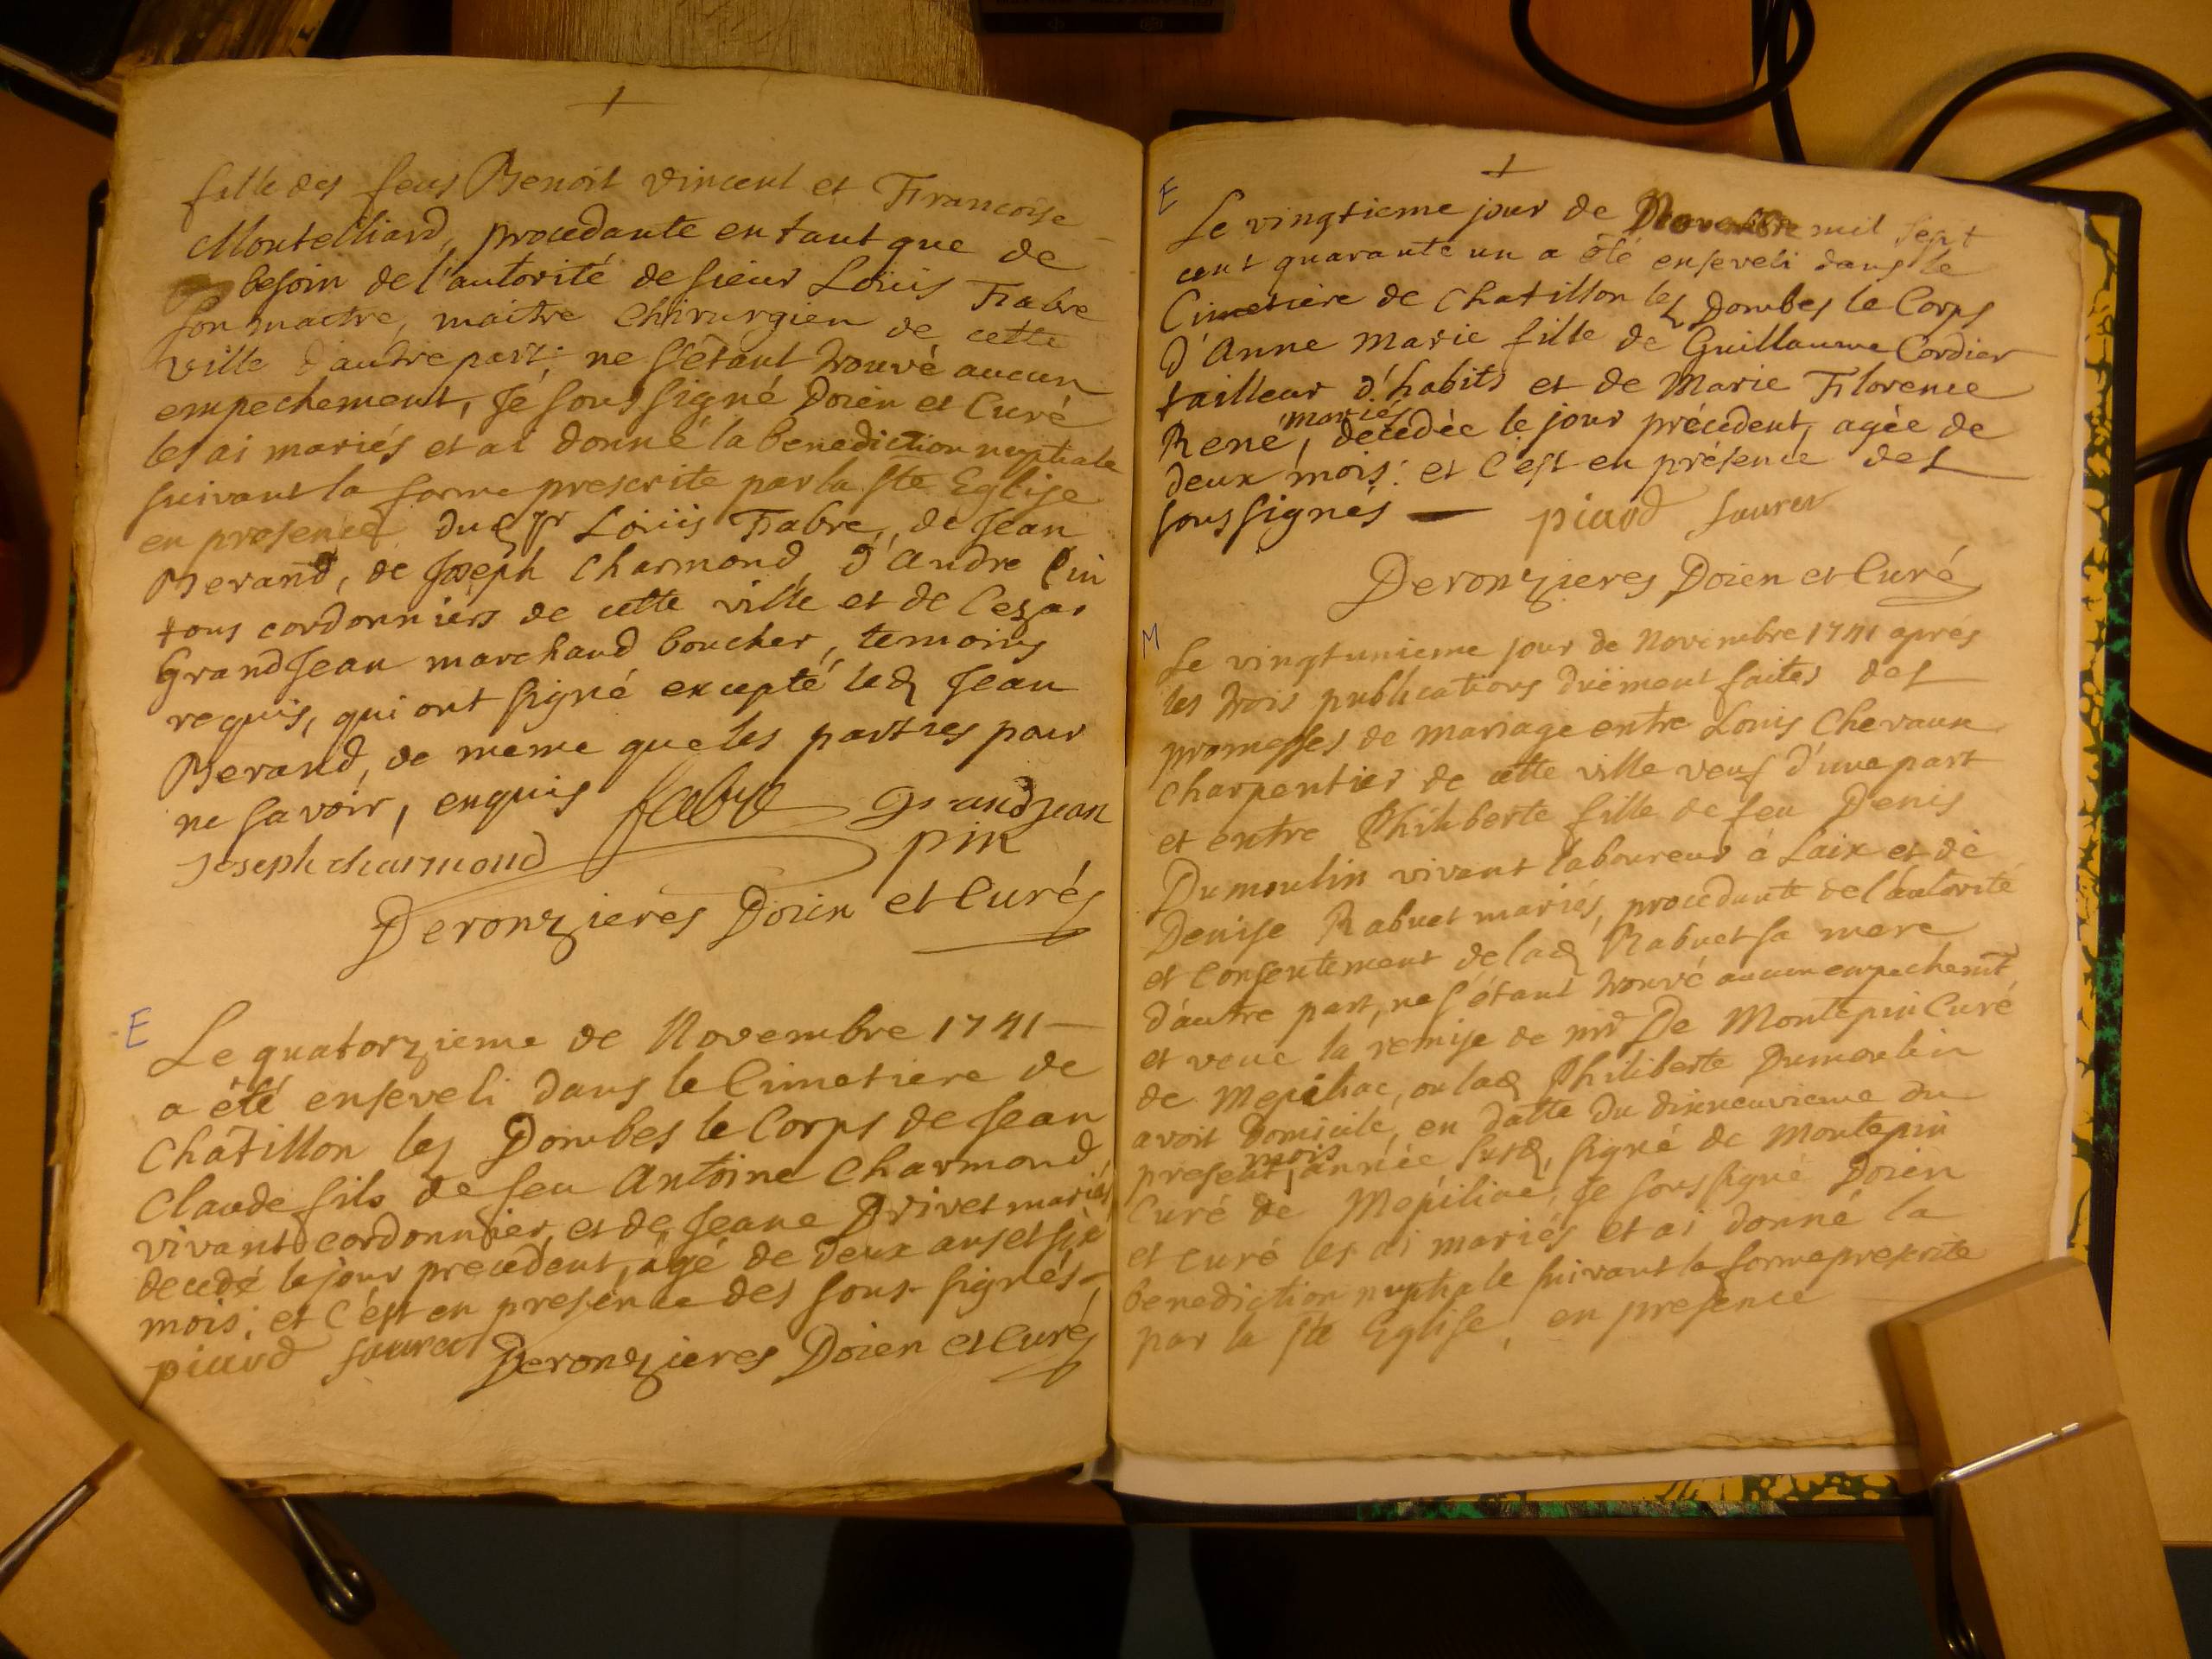 fille des feus Benoit Vincent et Francoise
Montelliard, procedante en tant que de
besoin de l'autorité de sieur Loüis Fabre
son maitre, maitre Chirurgien de cette
ville d'autre part; ne s'étant trouvé aucun
empechement, Je sous signé Doien et Curé
les ai mariés et ai donné la benediction nuptiale
suivant la forme prescrite par la Ste Eglise
en presence dud Sr Loüis Fabre, de Jean
Berand, de Joseph Charmond, d'Andre Pin
tous cordonniers de cette ville et de Cezar
GrandJean marchand boucher, temoins
requis, qui ont signé excepté led Jean
Berand, de même que les parties pour
ne savoir, enquis fabre grandjean
Joseph charmond pin
Deronzieres Doien et Curé
E
Le quatorzieme de Novembre 1741
a été enseveli dans le Cimetiere de
Châtillon les Dombes le Corps de Jean
Claude fils de feu Antoine Charmond
vivant cordonnier, et de Jeane Privet mariés
decedé le jour precedent, agé de deux ans et six
mois; et c'est en presence des sous-signés
picard
Deronzieres Doien et Curé
E
Le vingtieme jour de Novembre mil sept
cent quarante un a été enseveli dans le
Cimetiere de Chatillon les Dombes le Corps
d'Anne Marie fille de Guillaume Cordier
tailleur d'habits et de Marie Florence
René mariés, decédée le jour précedent, agée de
deux mois: et c'est en présence des
sous signés picard
Deronzieres Doien et Curé
M
Le vingtunieme jour de Novembre 1741 aprés
les trois publications düement faites des
promesses de mariage entre Louis Chevaux
charpentier de cette ville veuf d'une part
et entre Philiberte fille de feu Denis
Dumoulin vivant laboureur à Laix et de
Denise Rabuet mariés, procedante de l'autorité
et consentement de lad Rabuet sa mere
d'autre part, ne s'étant trouvé aucun empechemt
et veue la remise de mr De Montepin Curé
de Mepiliac, ou lad Philiberte Dumoulin
avoit domicile, en datte du dixneuvieme du
present mois, année susd, signé de Montepin
Curé de Mepiliac, Je sous signé Doien
et curé les ai mariés et ai donné la
benediction nuptiale suivant la forme prescrite
par la Ste Eglise, en presence